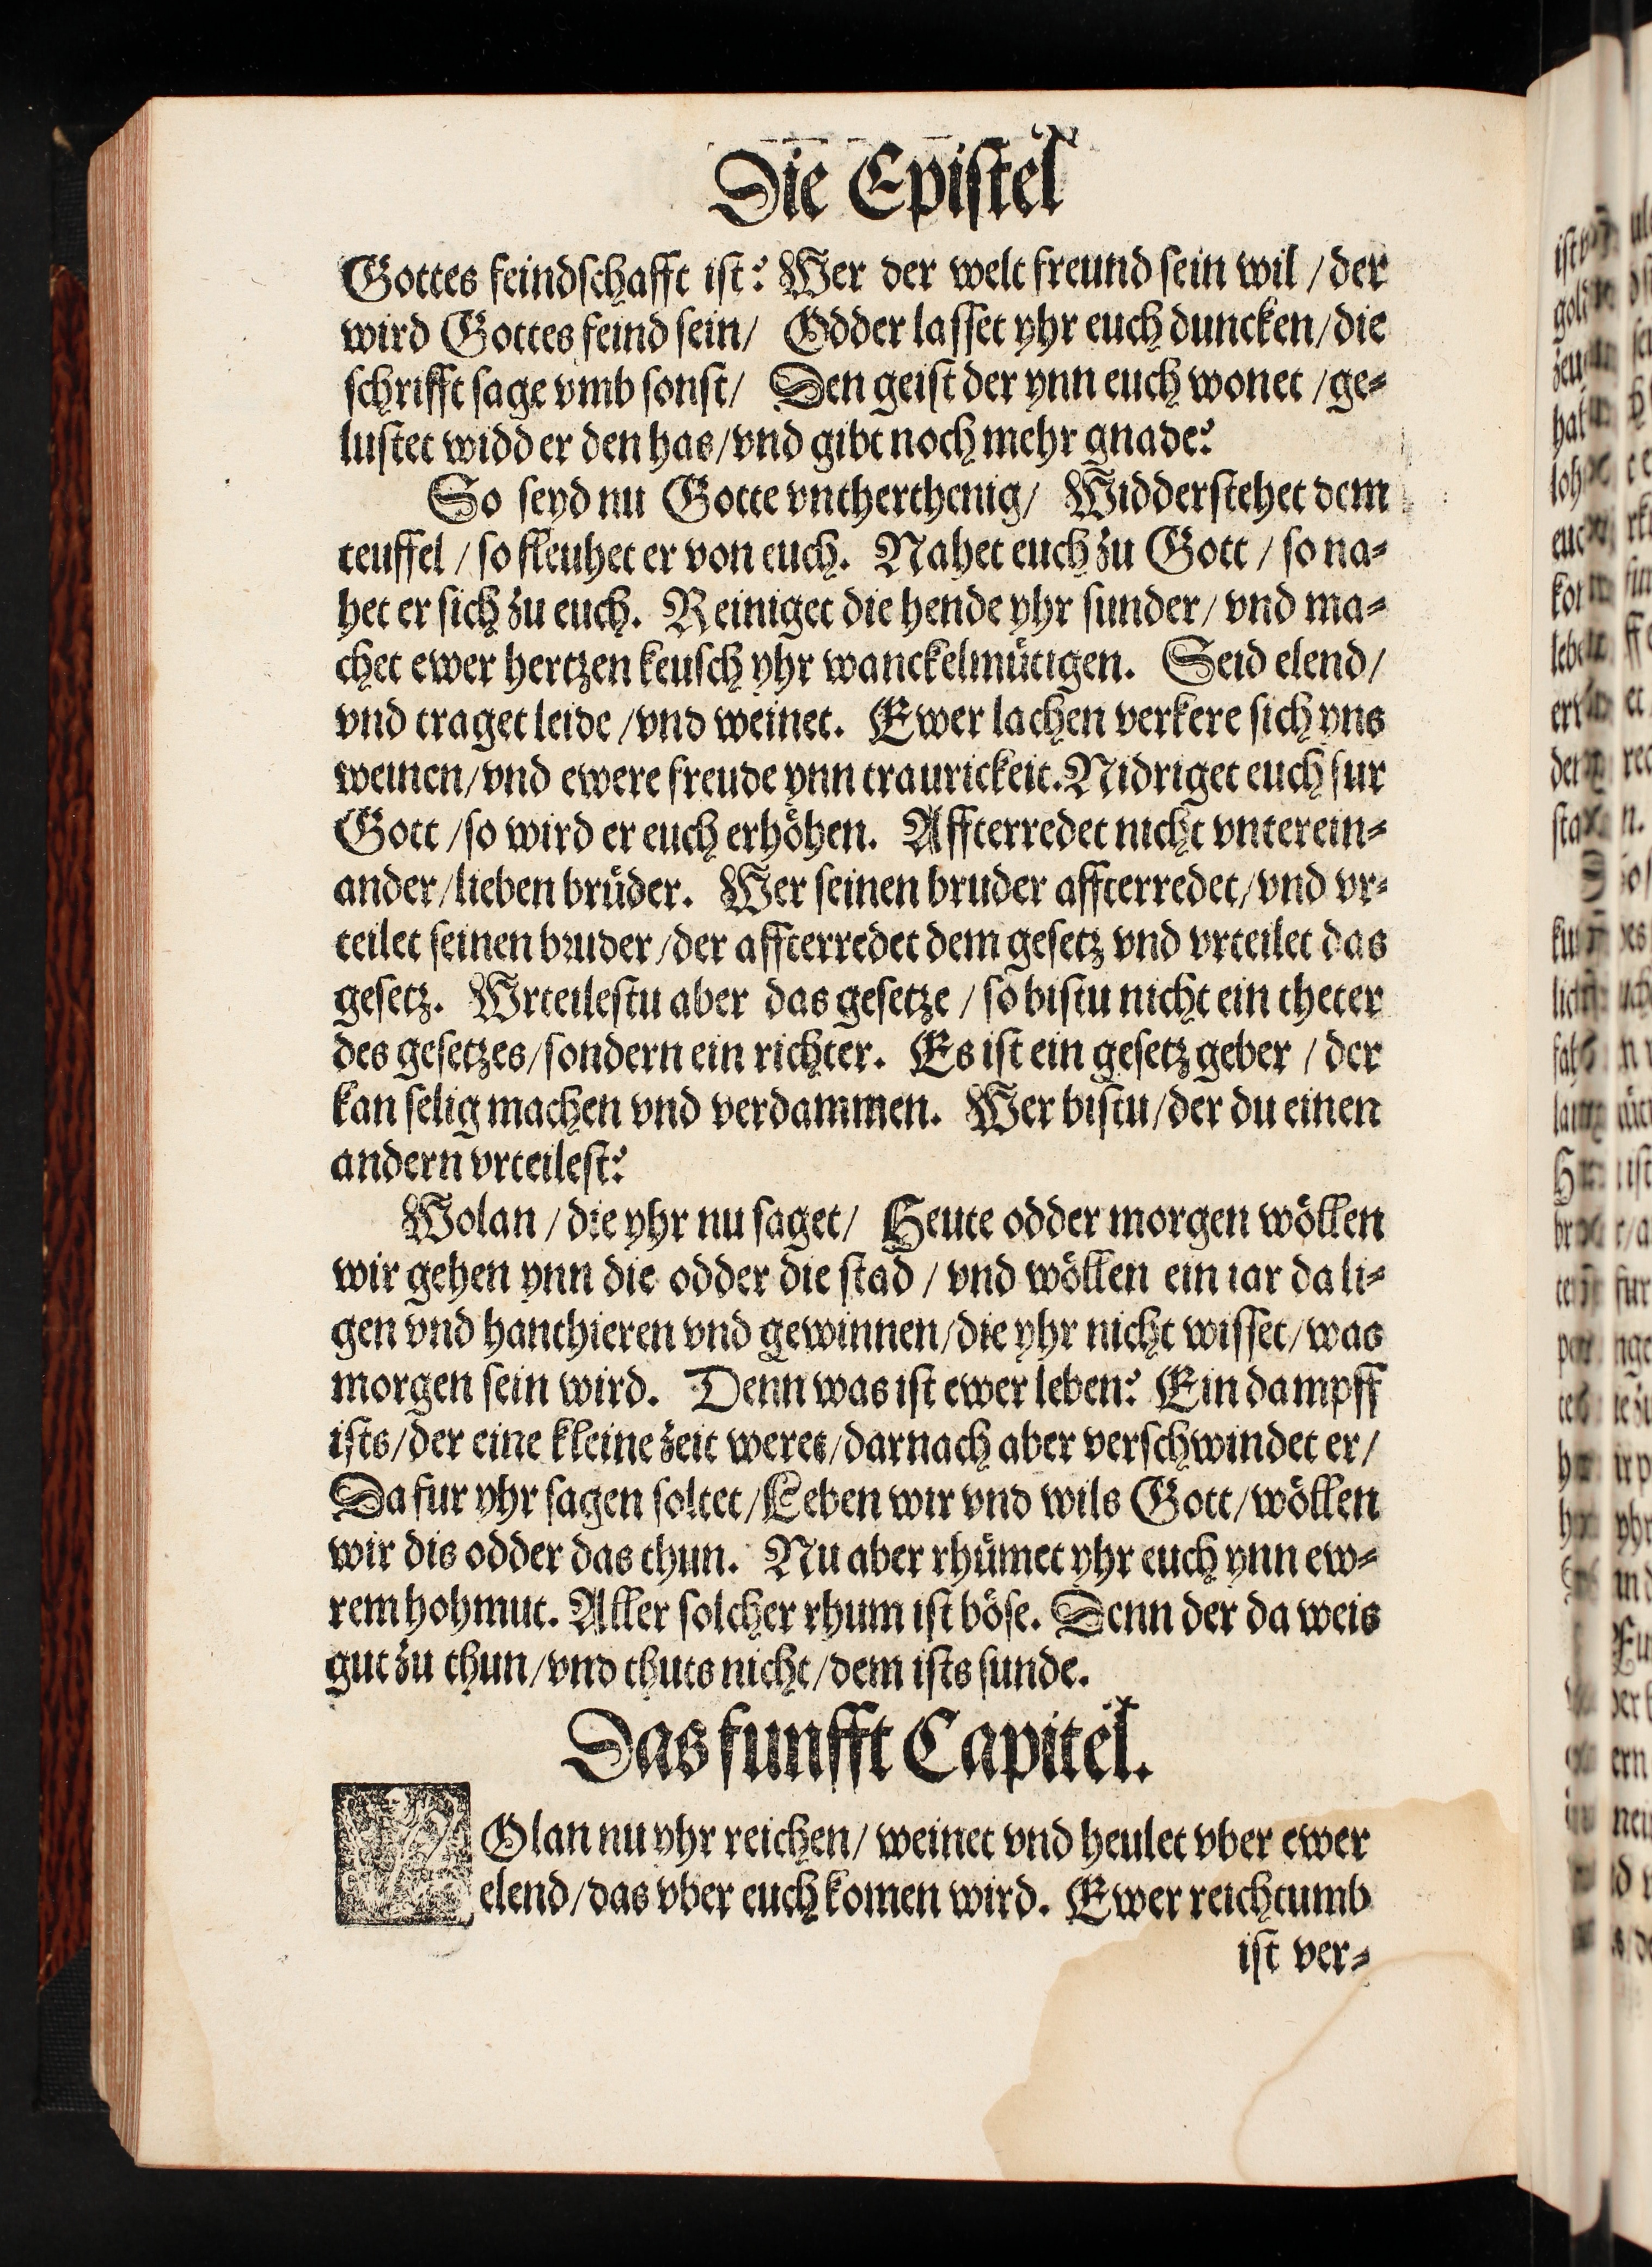 Die Epiſtel
Gottes feindſchafft iſt? Wer der welt freund ſein wil / der
wird Gottes feind ſein/ Odder laſſet yhr euch duncken/die
ſchrifft ſage vmb ſonſt/ Den geiſt der ynn euch wonet /ge⸗
luſtet widder den has/vnd gibt noch mehr gnade?
So ſeyd nu Gotte vntherthenig/ Widderſtehet dem
teuffel / ſo fleuhet er von euch. Nahet euch zu Gott / ſo na⸗
het er ſich zu euch. Reiniget die hende yhr ſunder/ vnd ma⸗
chet ewer hertzen keuſch yhr wanckelmütigen. Seid elend/
vnd traget leide /vnd weinet. Ewer lachen verkere ſich yns
weinen/vnd ewere freude ynn traurickeit. Nidriget euch fur
Gott /ſo wird er euch erhöhen. Affterredet nicht vnterein⸗
ander/lieben brüder. Wer ſeinen bruder affterredet/vnd vr⸗
teilet ſeinen bruder /der affterredet dem geſetz vnd vrteilet das
geſetz. Vrteileſtu aber das geſetze / ſo biſtu nicht ein theter
des geſetzes/ſondern ein richter. Es iſt ein geſetz geber / der
kan ſelig machen vnd verdammen. Wer biſtu/der du einen
andern vrteileſt?
Wolan / die yhr nu ſaget/ Heute odder morgen wöllen
wir gehen ynn die odder die ſtad / vnd wöllen ein iar da li⸗
gen vnd hanthieren vnd gewinnen/die yhr nicht wiſſet/was
morgen ſein wird. Denn was iſt ewer leben? Ein dampff
iſts/der eine kleine zeit weret/darnach aber verſchwindet er/
Da fur yhr ſagen ſoltet/Leben wir vnd wils Gott/wöllen
wir dis odder das thun. Nu aber rhümet yhr euch ynn ew⸗
rem hohmut. Aller ſolcher rhum iſt böſe. Denn der da weis
gut zu thun/vnd thuts nicht/dem iſts ſunde.
Das funfft Capitel.
WOlan nu yhr reichen/ weinet vnd heulet vber ewer
elend/das vber euch komen wird. Ewer reichtumb
iſt ver⸗